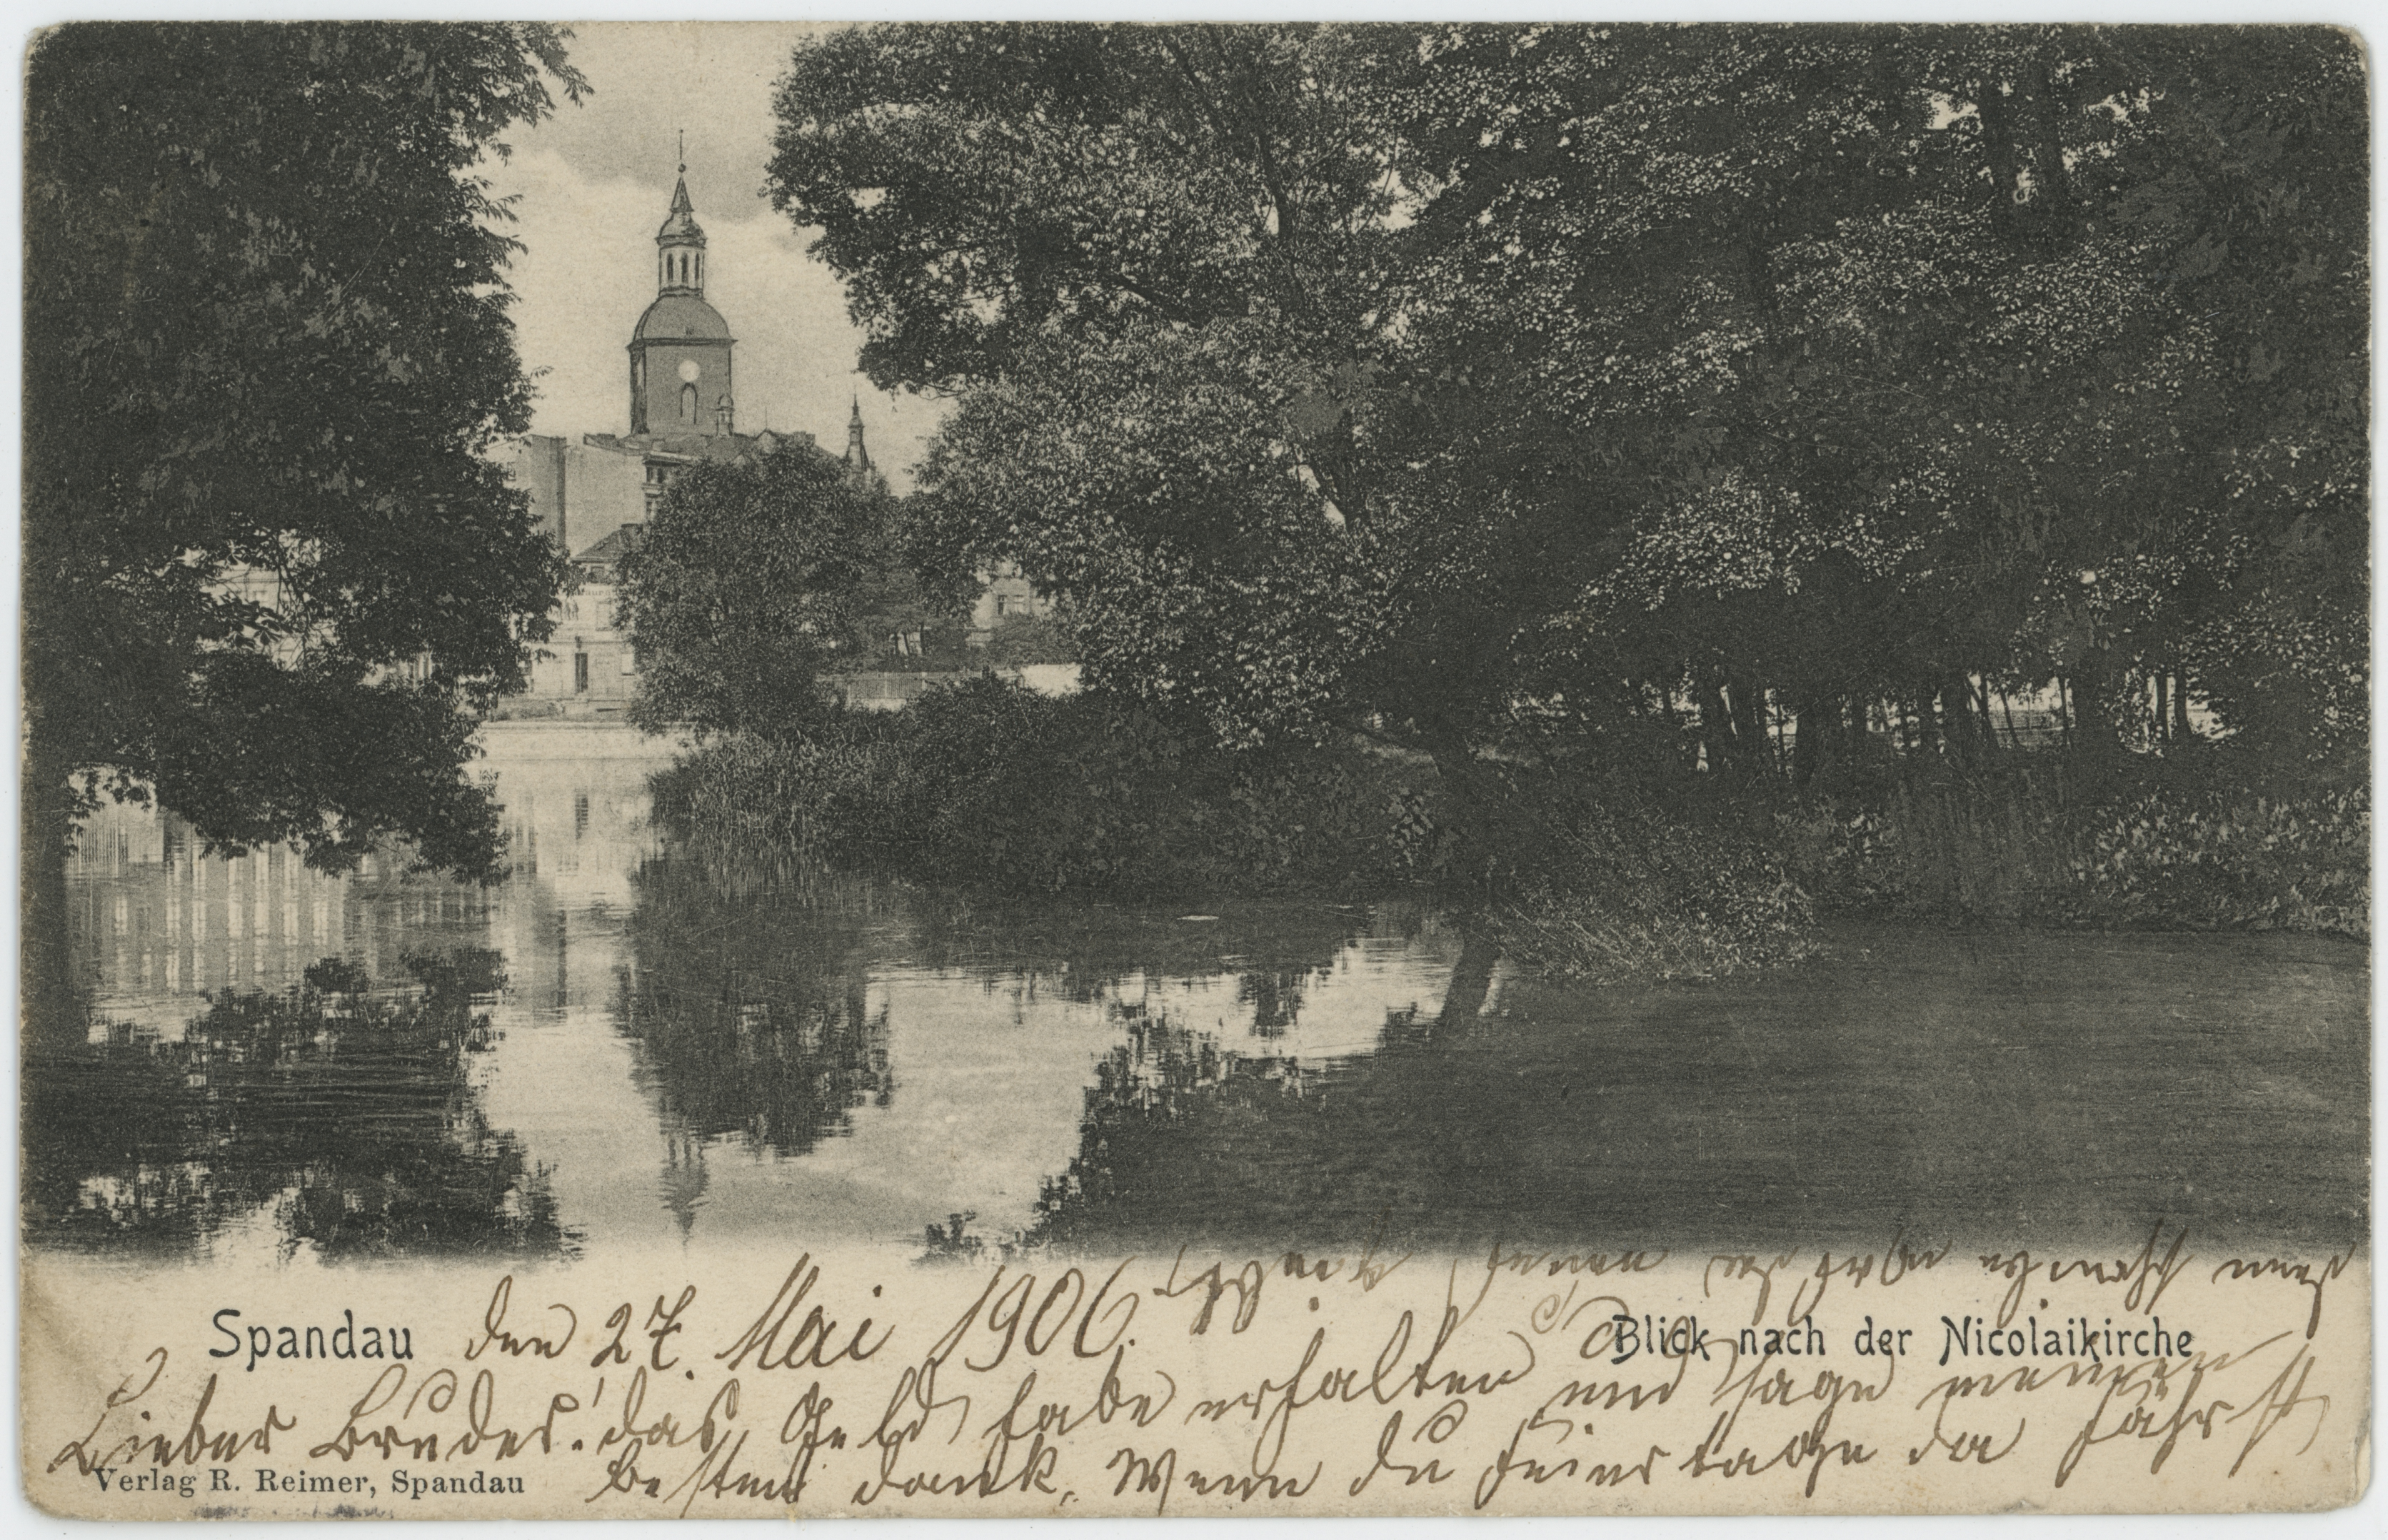 Spandau den 27. Mai 1906.
Blick nach der Nicolaikirche
Lieber Bruder! das Geld habe erhalten und sage meinen
besten dank. Wenn du Feiertage da fährst
Verlag R. Reimer, Spandau